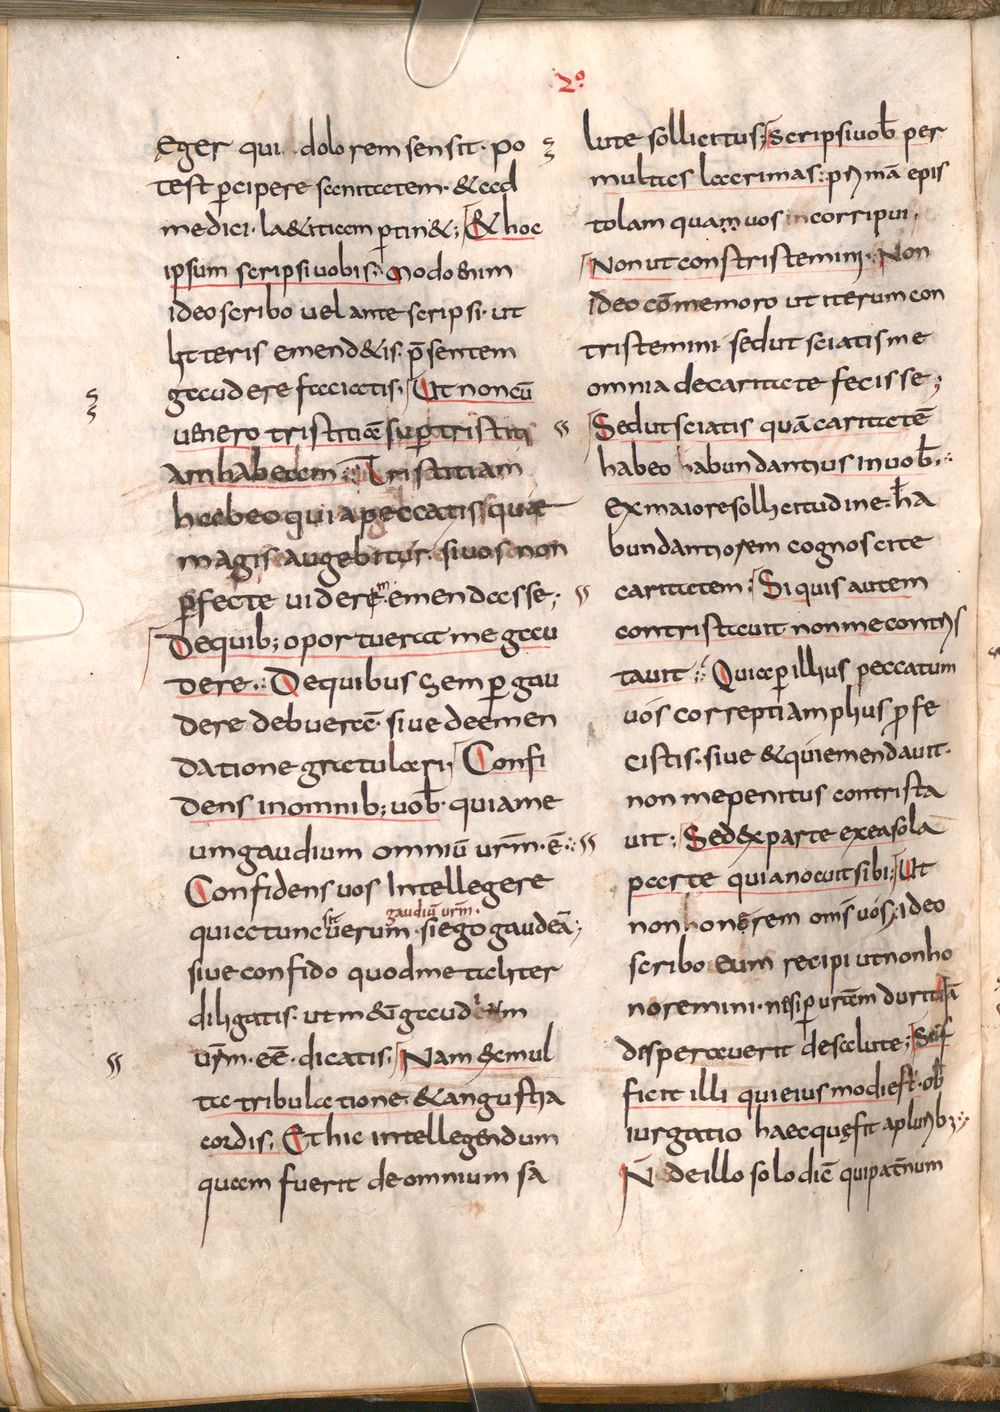 2º
eger qui dolorem sensit· po
test p̄cipere sanitatem· & ad
medici· la&itiam p̄tin&; & hoc
ipsum scripsi uobis· modo enim
ideo scribo uel ante scripsi· ut
litteris emend&is· p̄sentem
gaudere faciatis· Ut non cū
uenero tristitiā sup̄ tristiti
am habeam· Tristitiam
habeo quia peccatis quae
magis augebitur· si uos non
p̄fecte uidere emendasse;
De quib; oportuerat me gau
dere· De quibus semp̄ gau
dere debuerā· siue de emen
datione gratulari Confi
dens in omnib; uob̄· quia me
um gaudium omniū urm̄· ē·
Confidens uos intellegere
quia tunc sit uerum gaudiū urm̄· si ego gaudeā;
siue confido quod me taliter
diligatis· ut meū gaudium
urm̄· eē· dicatis· Nam ex mul
ta tribulatione· & angustia
cordis· Et hic intellegendum
quam fuerit de omnium sa
lute sollicitus; Scripsi uob̄ per
multas lacrimas· primā epis
tolam quam uos incorripui·
Non ut constristemini· Non
ideo cōmemoro ut iterum con
tristemini sed ut sciatis me
omnia de caritate fecisse;
Sed ut sciatis quā caritatē
habeo habundantius in uob̄·
Ex maiore sollicitudine· ha
bundantiorem cognoscite
caritatem; Si quis autem
contristauit non me contris
tauit· Quia p̄ illius peccatum
uos correpti amplius p̄fe
cistis· siue & qui emendauit·
non me penitus contrista
uit· Sed ex parte ex ea sola
parte qua nocuit sibi; Ut
non honerem om̄s uos; ideo
scribo eum recipi ut non ho
noremini· nisi p̄ urām duritiā
disperauerit de salute; Suf
ficit illi qui eiusmodi est· ob
iurgatio haec quę fit a plurib;
N̄ de illo solo diē qui patn̄um